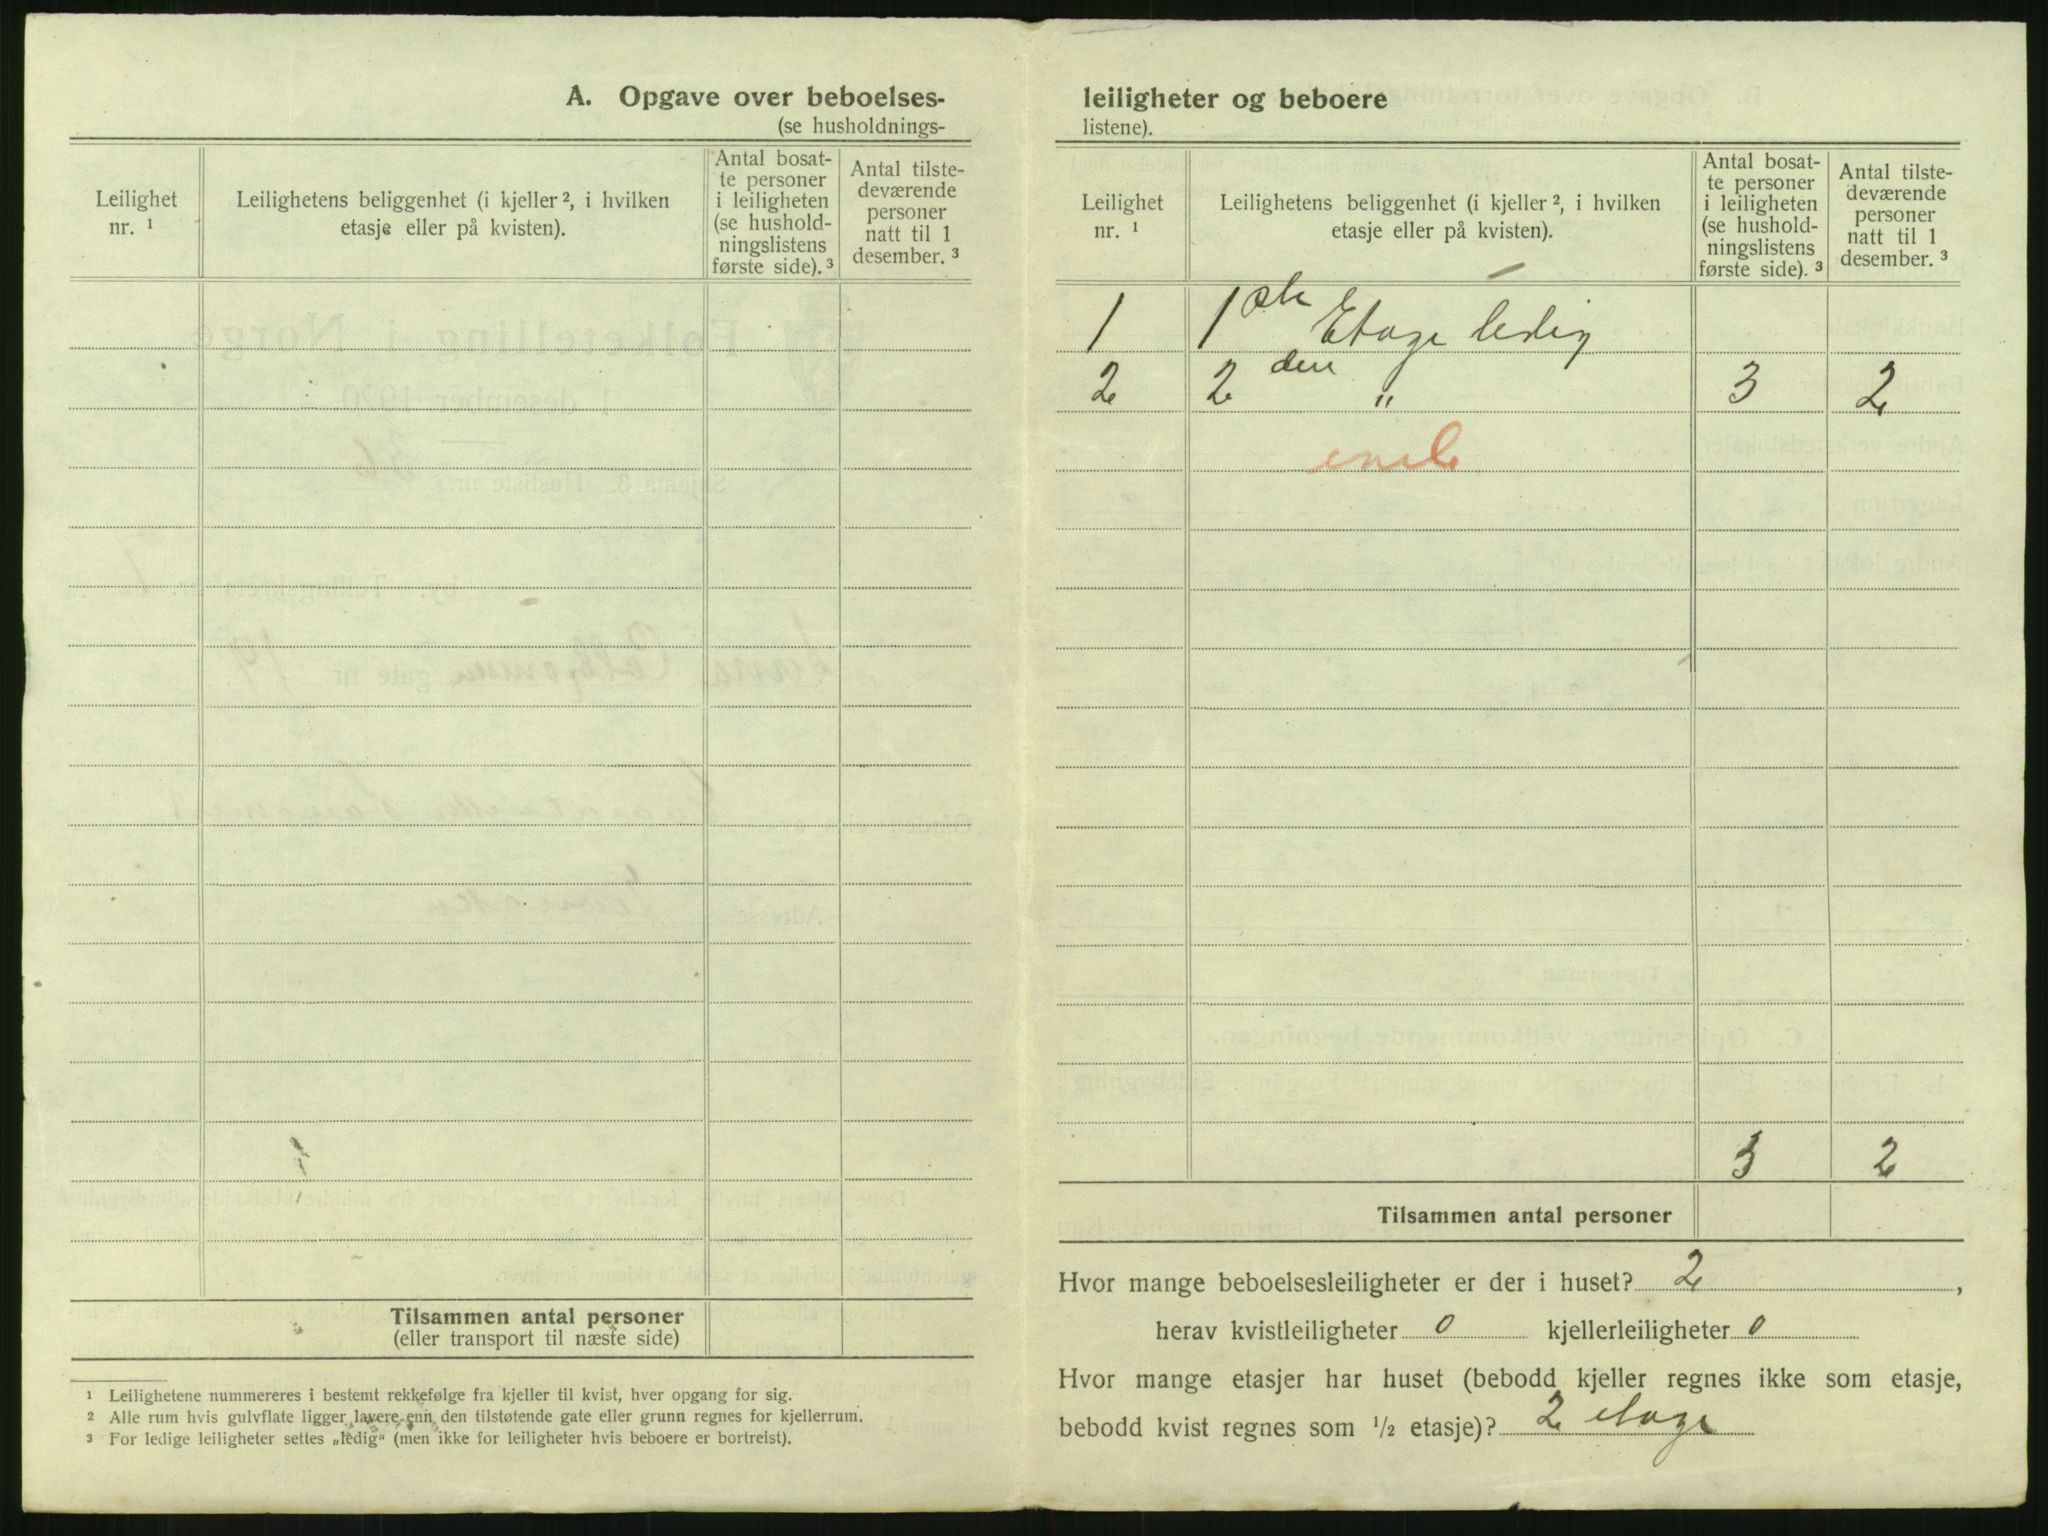 A. Opgave over beboelses-
(se husholdnings-
Leilighet
nr. ¹
Leilighetens beliggenhet (i kjeller ², i hvilken
etasje eller på kvisten).
Antal bosat-
te personer
i leiligheten
(se hushold-
ningslistens
første side). ³
Antal tilste-
deværende
personer
natt til 1
desember. ³
Tilsammen antal personer
(eller transport til næste side)
¹ Leilighetene nummereres i bestemt rekkefølge fra kjeller til kvist, hver opgang for sig.
² Alle rum hvis gulvflate ligger lavere enn den tilstøtende gate eller grunn regnes for kjellerrum.
³ For ledige leiligheter settes „ledig“ (men ikke for leiligheter hvis beboere er bortreist).
leiligheter og beboere
listene).
Leilighet
nr. ¹
Leilighetens beliggenhet (i kjeller ², i hvilken
etasje eller på kvisten).
Antal bosat-
te personer
i leiligheten
(se hushold-
ningslistens
første side). ³
Antal tilste-
deværende
personer
natt til 1
desember. ³
1 1ste Etage ledig
2 2den „ 3 2
3 2
Tilsammen antal personer
Hvor mange beboelsesleiligheter er der i huset? 2,
herav kvistleiligheter 0 kjellerleiligheter 0
Hvor mange etasjer har huset (bebodd kjeller regnes ikke som etasje,
bebodd kvist regnes som ½ etasje)? 2 etage